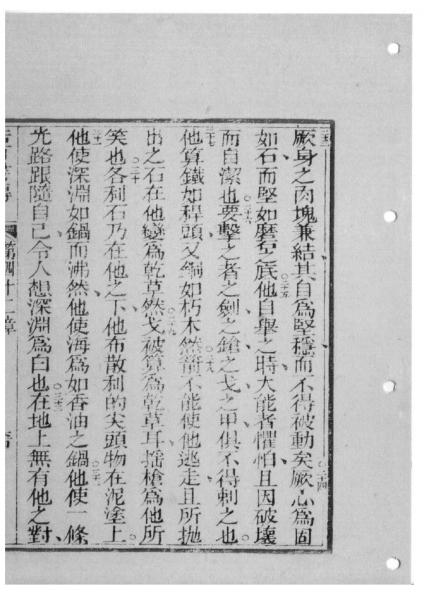 厥身之肉塊兼結其自爲堅穩而不得破動矣厥心爲固
如石而堅如磨至底他自舉之時大能者懼怕且因破壞
而自潔也要擊之者之劍之鎗之戈之甲俱不得刺之也
他算鐵如稈頭又銅如朽木然箭不能使他逃走且所拋
出之石在他變爲乾草然戈被算爲乾草耳搖槍爲他所
笑也各利石乃在他之下他布散利的尖頭物在泥塗上
他使深淵如鍋而沸然他使海爲如香油之鍋他使一條
光路跟隨自己令人想深淵爲白也在地上無有他之對
第四十二章